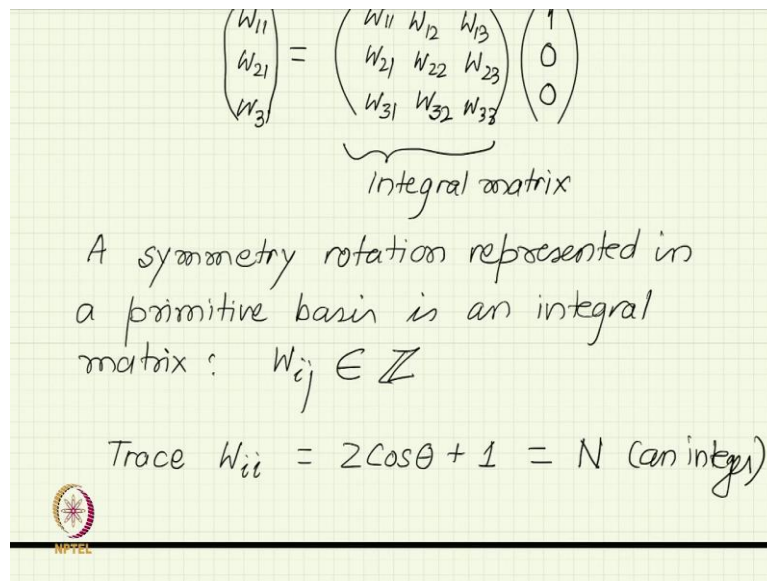 (W11 W21 W31) = (W11 W12 W13 W21 W22 W23 W31 W32 W33) (1 0 0)
Integral matrix
A symmetry rotation represented in
a primitive basis is an integral
matrix : Wij ∈ ℤ
Trace Wii = 2Cosθ + 1 = N (an integer)
NPTEL